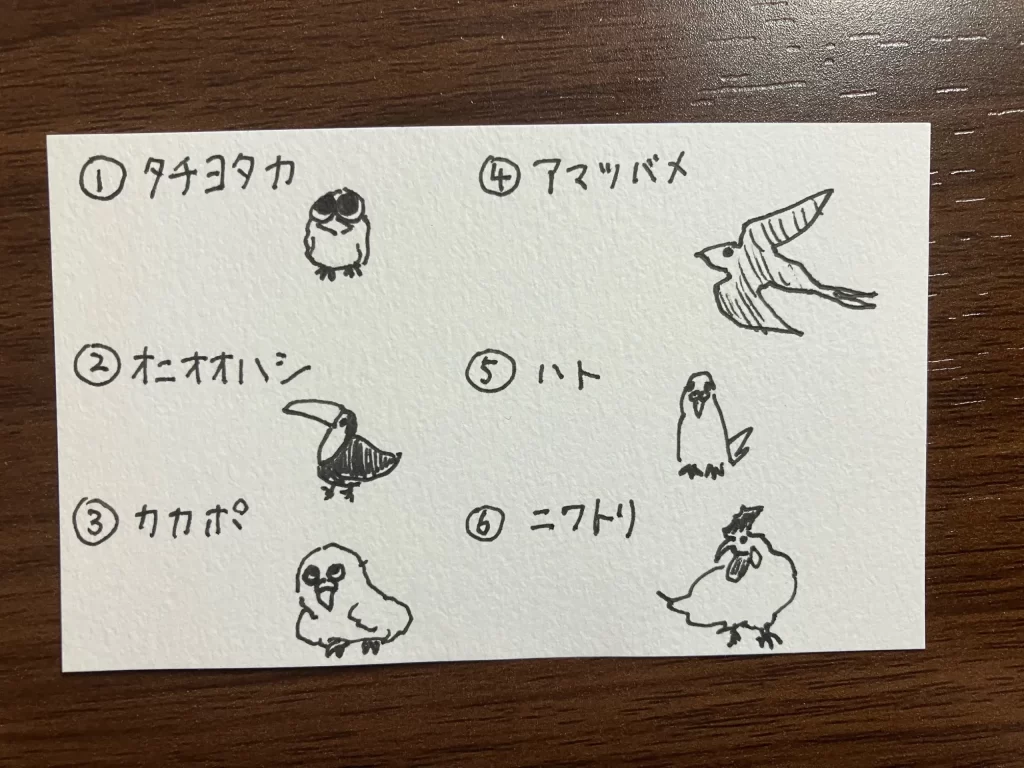 ① タチヨタカ
② オニオオハシ
③ カカポ
④ アマツバメ
⑤ ハト
⑥ ニワトリ